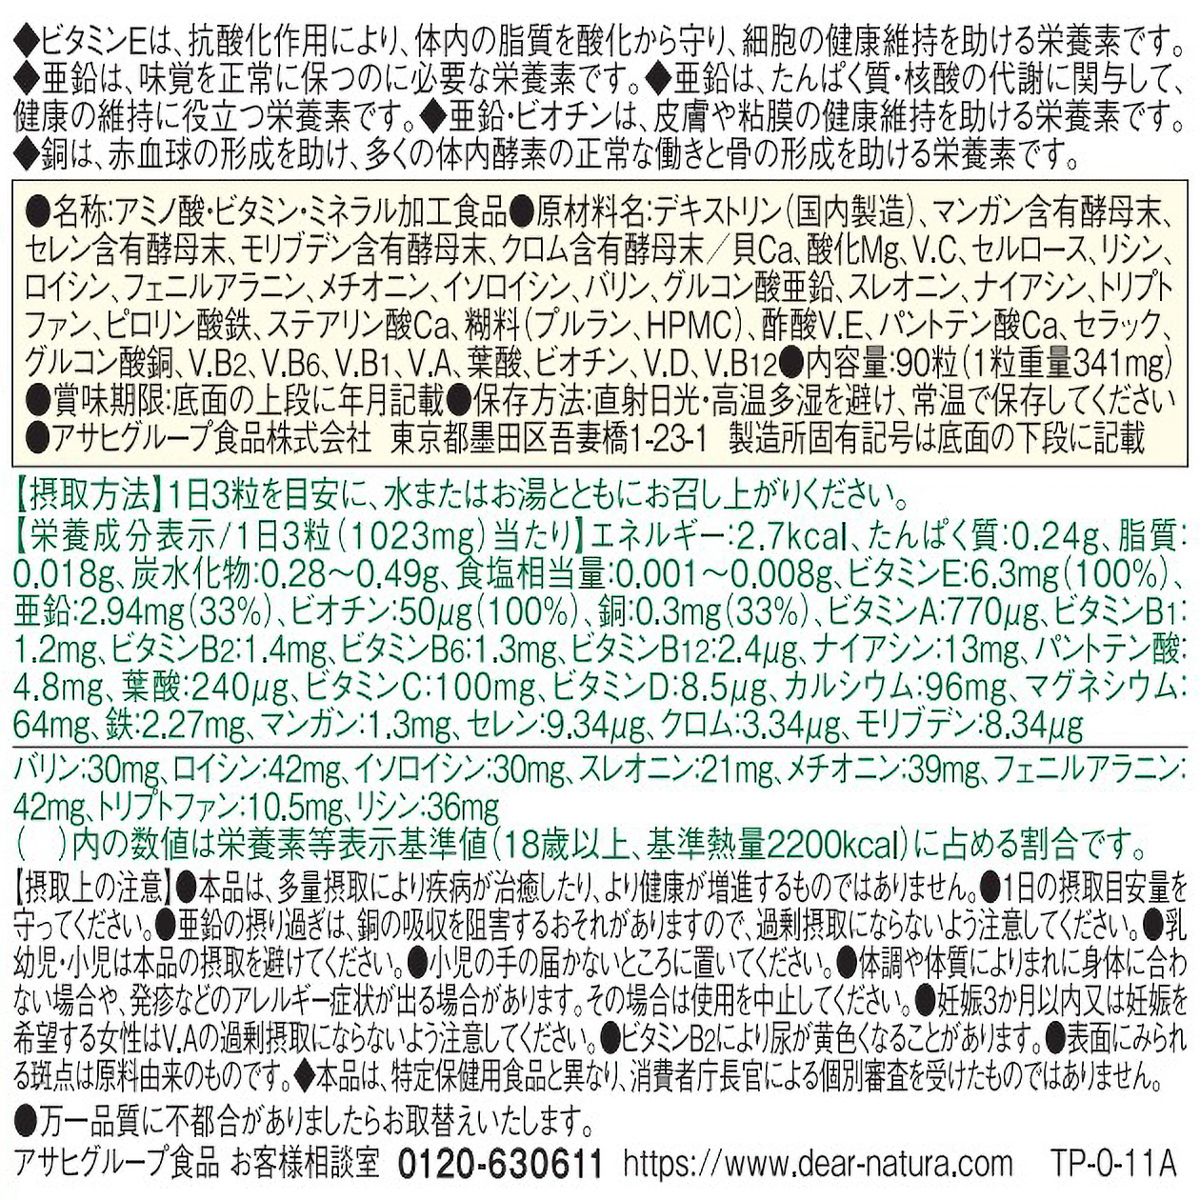 ◆ビタミンEは、抗酸化作用により、体内の脂質を酸化から守り、細胞の健康維持を助ける栄養素です。
◆亜鉛は、味覚を正常に保つのに必要な栄養素です。◆亜鉛は、たんぱく質・核酸の代謝に関与して、
健康の維持に役立つ栄養素です。◆亜鉛・ビオチンは、皮膚や粘膜の健康維持を助ける栄養素です。
◆銅は、赤血球の形成を助け、多くの体内酵素の正常な働きと骨の形成を助ける栄養素です。
●名称:アミノ酸・ビタミン・ミネラル加工食品●原材料名:デキストリン（国内製造）、マンガン含有酵母末、
セレン含有酵母末、モリブデン含有酵母末、クロム含有酵母末／貝Ca、酸化Mg、V.C、セルロース、リシン、
ロイシン、フェニルアラニン、メチオニン、イソロイシン、バリン、グルコン酸亜鉛、スレオニン、ナイアシン、トリプト
ファン、ピロリン酸鉄、ステアリン酸Ca、糊料（プルラン、HPMC）、酢酸V.E、パントテン酸Ca、セラック、
グルコン酸銅、V.B2、V.B6、V.B1、V.A、葉酸、ビオチン、V.D、V.B12●内容量:90粒（1粒重量341mg）
●賞味期限:底面の上段に年月記載●保存方法:直射日光・高温多湿を避け、常温で保存してください
●アサヒグループ食品株式会社 東京都墨田区吾妻橋1-23-1 製造所固有記号は底面の下段に記載
【摂取方法】1日3粒を目安に、水またはお湯とともにお召し上がりください。
【栄養成分表示/1日3粒（1023mg）当たり】エネルギー:2.7kcal、たんぱく質:0.24g、脂質:
0.018g、炭水化物:0.28～0.49g、食塩相当量:0.001～0.008g、ビタミンE:6.3mg（100%）、
亜鉛:2.94mg（33%）、ビオチン:50μg（100%）、銅:0.3mg（33%）、ビタミンA:770μg、ビタミンB1:
1.2mg、ビタミンB2:1.4mg、ビタミンB6:1.3mg、ビタミンB12:2.4μg、ナイアシン:13mg、パントテン酸:
4.8mg、葉酸:240μg、ビタミンC:100mg、ビタミンD:8.5μg、カルシウム:96mg、マグネシウム:
64mg、鉄:2.27mg、マンガン:1.3mg、セレン:9.34μg、クロム:3.34μg、モリブデン:8.34μg
バリン:30mg、ロイシン:42mg、イソロイシン:30mg、スレオニン:21mg、メチオニン:39mg、フェニルアラニン:
42mg、トリプトファン:10.5mg、リシン:36mg
（ ）内の数値は栄養素等表示基準値（18歳以上、基準熱量2200kcal）に占める割合です。
【摂取上の注意】●本品は、多量摂取により疾病が治癒したり、より健康が増進するものではありません。●1日の摂取目安量を
守ってください。●亜鉛の摂り過ぎは、銅の吸収を阻害するおそれがありますので、過剰摂取にならないよう注意してください。●乳
幼児・小児は本品の摂取を避けてください。●小児の手の届かないところに置いてください。●体調や体質によりまれに身体に合わ
ない場合や、発疹などのアレルギー症状が出る場合があります。その場合は使用を中止してください。●妊娠3か月以内又は妊娠を
希望する女性はV.Aの過剰摂取にならないよう注意してください。●ビタミンB2により尿が黄色くなることがあります。●表面にみられ
る斑点は原料由来のものです。◆本品は、特定保健用食品と異なり、消費者庁長官による個別審査を受けたものではありません。
●万一品質に不都合がありましたらお取替えいたします。
アサヒグループ食品 お客様相談室 0120-630611 https://www.dear-natura.com TP-0-11A